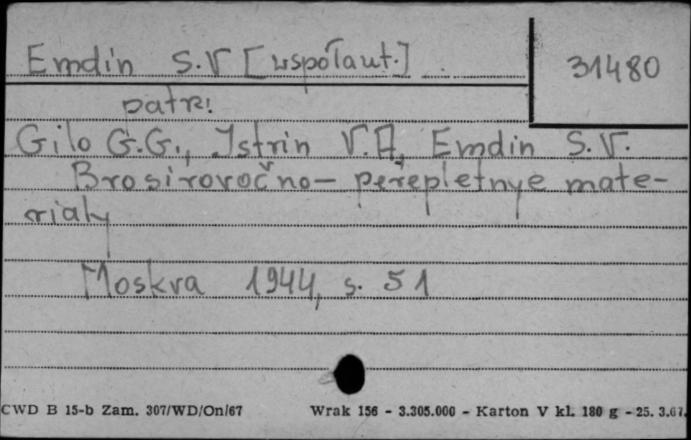 Emdin S.V [współaut.]
31480
patrz:
Gilo G.G., Istrin V.A, Emdin S.V.
Brosirovočno- perepletnye mate-
rialy
Moskva 1944, s. 51
CWD B 15-b Zam. 307/WD/On/67 Wrak 156 - 3.305.000 - Karton V kl. 180 g - 25. 3.67.